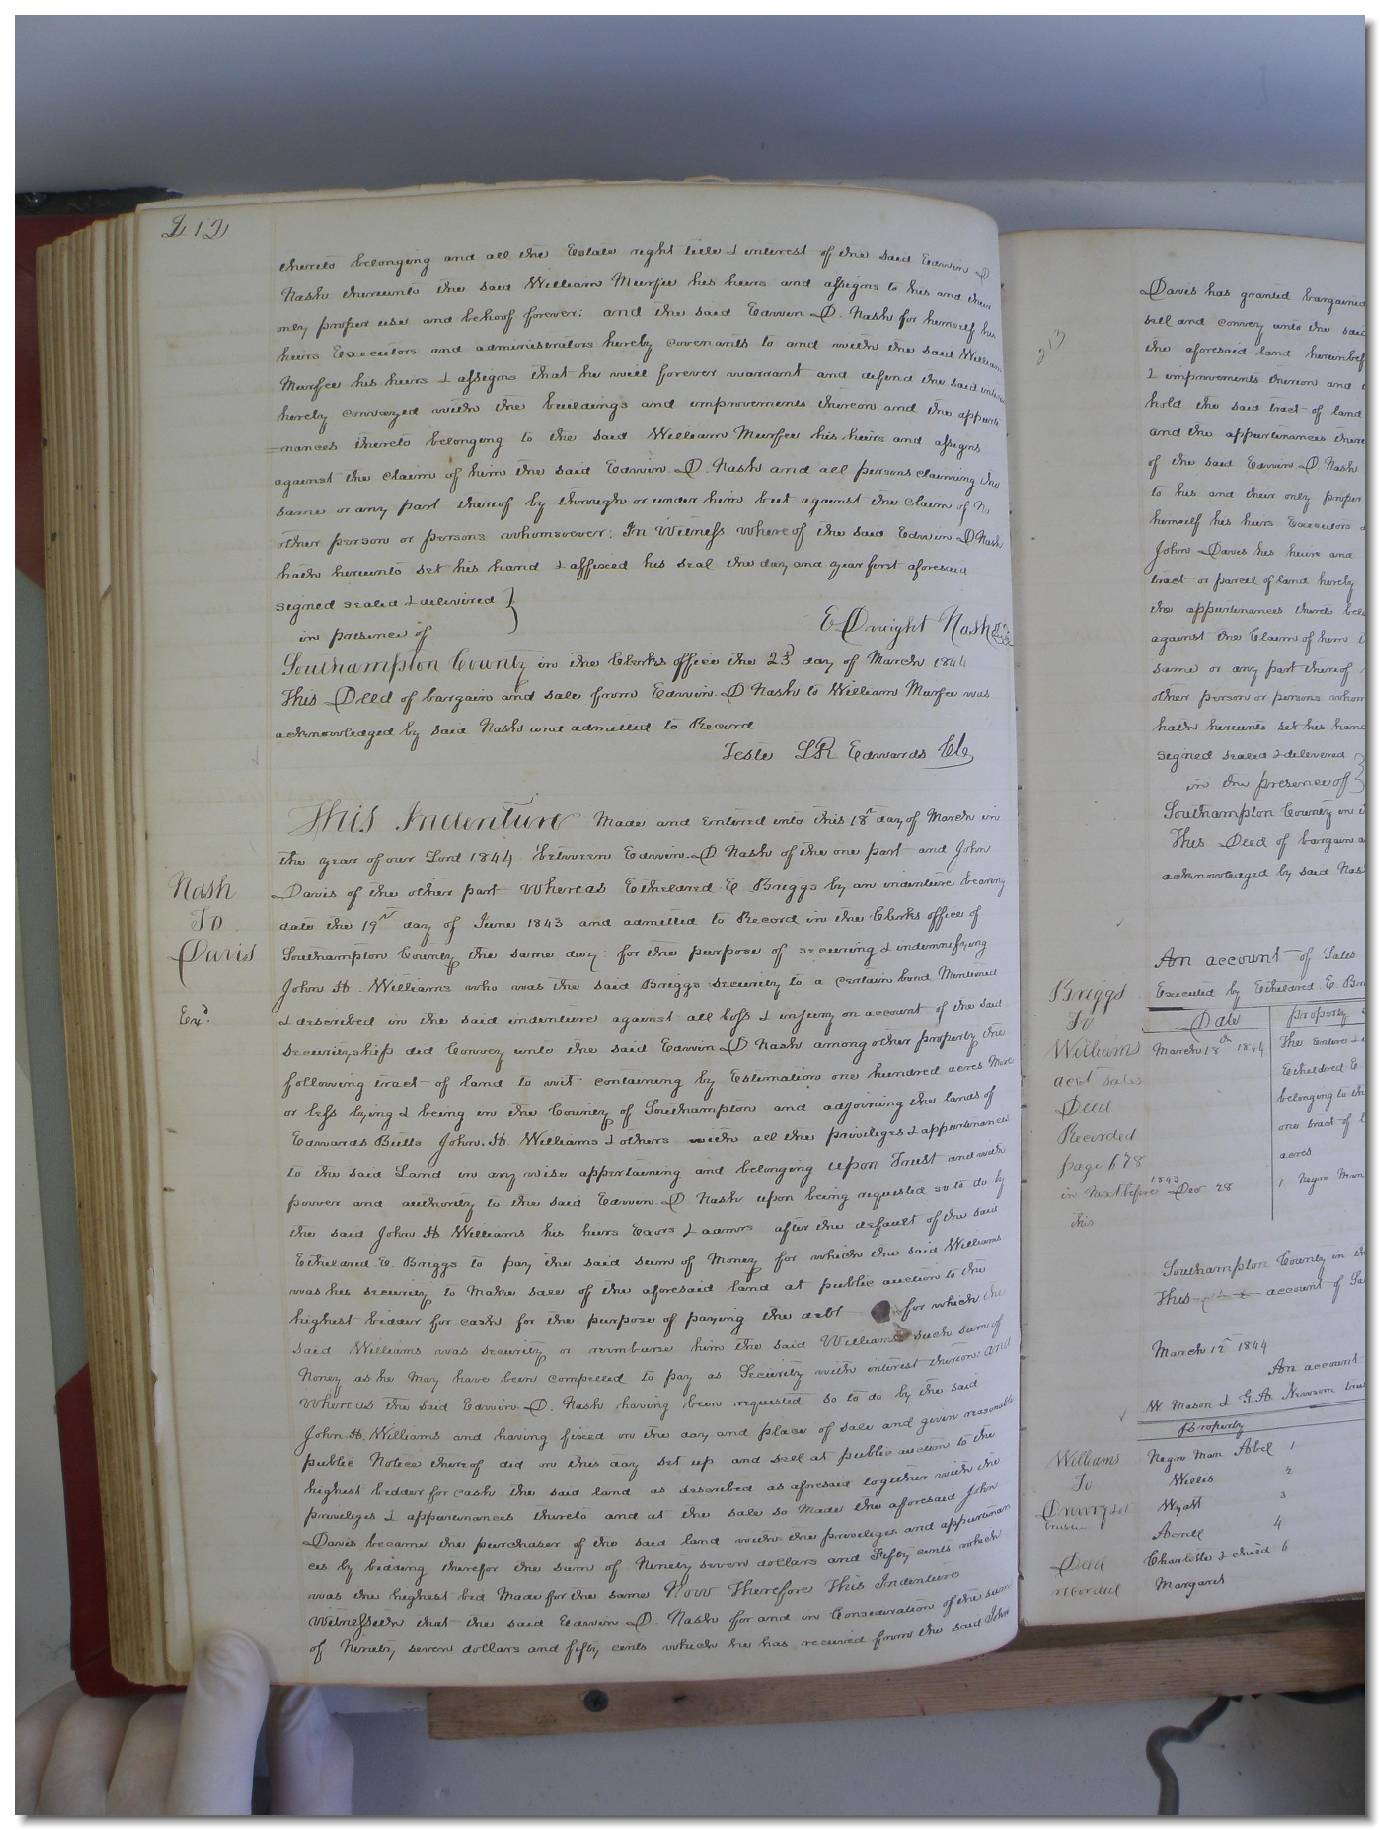 212
thereto belonging and all the Estate right title & interest of the said Edwin D
Nash thereunto the said William Murfee his heirs and assigns to his and their
only proper use and behoof forever: and the said Edwin D. Nash for himself his
heirs Executors and administrators hereby covenants to and with the said William
Murfee his heirs & assigns that he will forever warrant and defend the said
hereby conveyed with the buildings and improvements thereon and the appurte
=nances thereto belonging to the said William Murfee his heirs and assigns
against the claim of him the said Edwin D. Nash and all persons claiming the
same or any part thereof by through or under him but against the claim of No
other person or persons whomsoever: In Witness whereof the said Edwin D Nash
hath hereunto set his hand & affixed his seal the day and year first aforesaid
signed sealed & delivered }
in presence of
E Dwight Nash
Southampton County in the Clerks office the 23d day of March 1844
This Deed of bargain and sale from Edwin. D Nash to William Murfee was
acknowledged by said Nash and admitted to Record
Teste LR Edwards Clk
This Indenture Made and Entered into this 18th day of March in
the year of our Lord 1844 between Edwin. D Nash of the one part and John
Nash
To
Davis
Exd.
Davis of the other part Whereas Etheldred E Briggs by an indenture bearing
date the 19th day of June 1843 and admitted to Record in the Clerks office of
Southampton County the same day: for the purpose of securing & indemnifying
John H. Williams who was the said Briggs security to a certain bond Mentioned
& described in the said indenture against all loss & injury on account of the said
securityship did Convey unto the said Edwin D Nash among other property the
following tract of land to wit containing by Estimation one hundred acres More
or less lying & being in the County of Southampton and adjoining the lands of
Edwards Butts John. H. Williams & others with all the priviliges & appurtenances
to the said Land in any wise appertaining and belonging upon Trust and with
power and authority to the said Edwin. D Nash upon being requested so to do by
the said John. H Williams his heirs Exors & admrs after the default of the said
Etheldred E. Briggs to pay the said sum of Money for which the said Williams
was his security to Make sale of the aforesaid land at public auction to the
highest bidder for cash for the purpose of paying the debt for which the
said Williams was security or reimburse him the said Williams such sum of
Money as he May have been compelled to pay as Security with interest thereon: And
Whereas the said Edwin D. Nash having been requested so to do by the said
John. H. Williams and having fixed on the day and place of sale and given reasonable
public Notice thereof did on this day set up and sell at public auction to the
highest bidder for cash the said land as described as aforesaid together with the
priviliges & appurtenances thereto and at the sale so Made the aforesaid John
Davis became the purchaser of the said land with the priviliges and appurtenan
ces by bidding therefor the sum of Ninety seven dollars and Fifty cents which
was the highest bid Made for the same Now Therefore This Indenture
Witnesseth that the said Edwin D. Nash for and in Consideration of the sum
of Ninety seven dollars and fifty cents which he has received from the said John
213
Davis has granted bargained
sell and convey unto the said
the aforesaid land hereinbef
& improvements thereon and
hold the said tract of land
and the appurtenances there
of the said Edwin D. Nash
to his and their only proper
himself his heirs Executors
John Davis his heirs and
tract or parcel of land hereby
the appurtenances thereto bel
against the Claim of him
same or any part thereof
other person or persons whom
hath hereunto set his hand
signed sealed & delivered }
in the presence of }
Southampton County in
This Deed of bargain a
acknowledged by said Nas
An account of Sales
Executed by Etheldred. E. Br
Briggs
To
Williams
acct sales
Deed
Recorded
page 678
in Next before
this
Date
property
March 18th 1844
The Entire
Etheldred E
belonging to th
one tract of l
acres
1843 Dec 28
1 Negro Man
Southampton County in th
This account of Sa
March 12th 1844
An account
W Mason & G.A. Newsom
Property
Williams
To
Deed
recorded
Negro Man Abel 1
Willis 2
Wyatt 3
4
Charlotte & child 6
Margaret